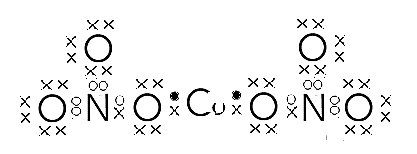 O O
O N O Cu O N O